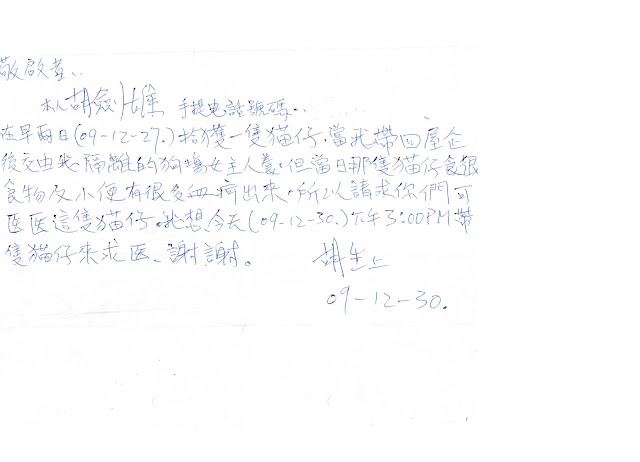 敬啟者..
本人胡 雄 手提电話號碼..
在早兩日(09-12-27.)拾獲一隻猫仔.當我帶回屋企
後交由我隔離的狗場女主人養.但當日那隻猫仔食很
食物及小便有很多血 出來.所以請求你們可
医医這隻猫仔.我想今天(09-12-30.)下午3:00PM帶
隻猫仔來求医、謝謝。
胡生上
09-12-30.